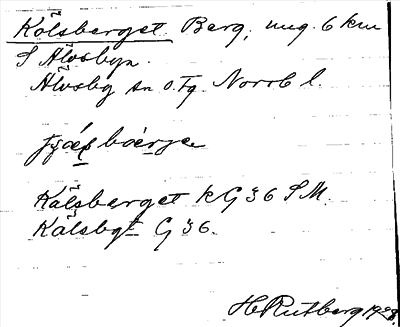 Kölsberget Berg, ung. 6 km
S Älvsbyn.
Älvsby sn o. Fg. Norrb l.
Kälsberget k G 36 SM.
Kälsbgt G 36.
H Rutberg 1928.